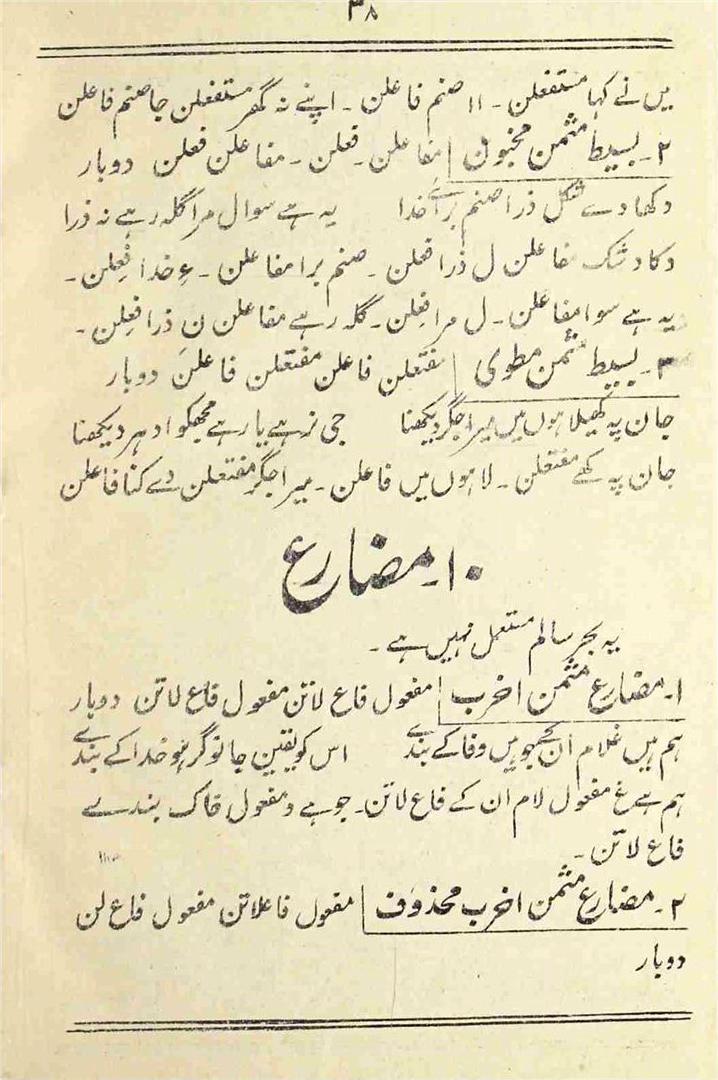 ۳۸
میں نے کہا مستفعلن ۔ اا صنم فاعلن ۔ اپنے نہ گھر مستفعلن جا صنم فاعلن
۲۔ بسیط مثمن مخبون | مفاعلن ۔ فعلن ۔ مفاعلن فعلن دوبار
دکھا دے شکل ذرا صنم برائے خدا یہ ہے سوال مرا گلہ رہے نہ ذرا
دکا دشک مفاعلن ل ذرا فعلن ۔ صنم برا مفاعلن ۔ ءِ خدا فِعلن ۔
یہ ہے سوا مفاعلن ۔ ل مرا فِعلن ۔ گلہ رہے مفاعلن ن ذرا فعِلن ۔
۳۔ بسیط مثمن مطوی | مفتعلن فاعلن مفتعلن فاعلن دوبار
جان پہ کھیلا ہوں میں میرا جگر دیکھنا جی نرہے یا رہے مجھکو ادہر دیکھنا
جان پہ کھے مفتعلن ۔ لا ہوں میں فاعلن ۔ میرا جگر مفتعلن دے کنا فاعلن
۱۰۔ مضارع
یہ بحر سالم مستعمل نہیں ہے ۔
۱۔ مضارع مثمن اخرب | مفعول فاع لاتن مفعول فاع لاتن دوبار
ہم ہیں غلام ان کے جو ہیں وفا کے بندے اس کو یقین جانو گر ہو خدا کے بندے
ہم ہے غ مفعول لام ان کے فاع لاتن ۔ جو ہے و مفعول فاک بندے
فاع لاتن ۔
۲۔ مضارع مثمن اخرب محذوف | مفعول فاعلاتن مفعول فاع لن
دوبار